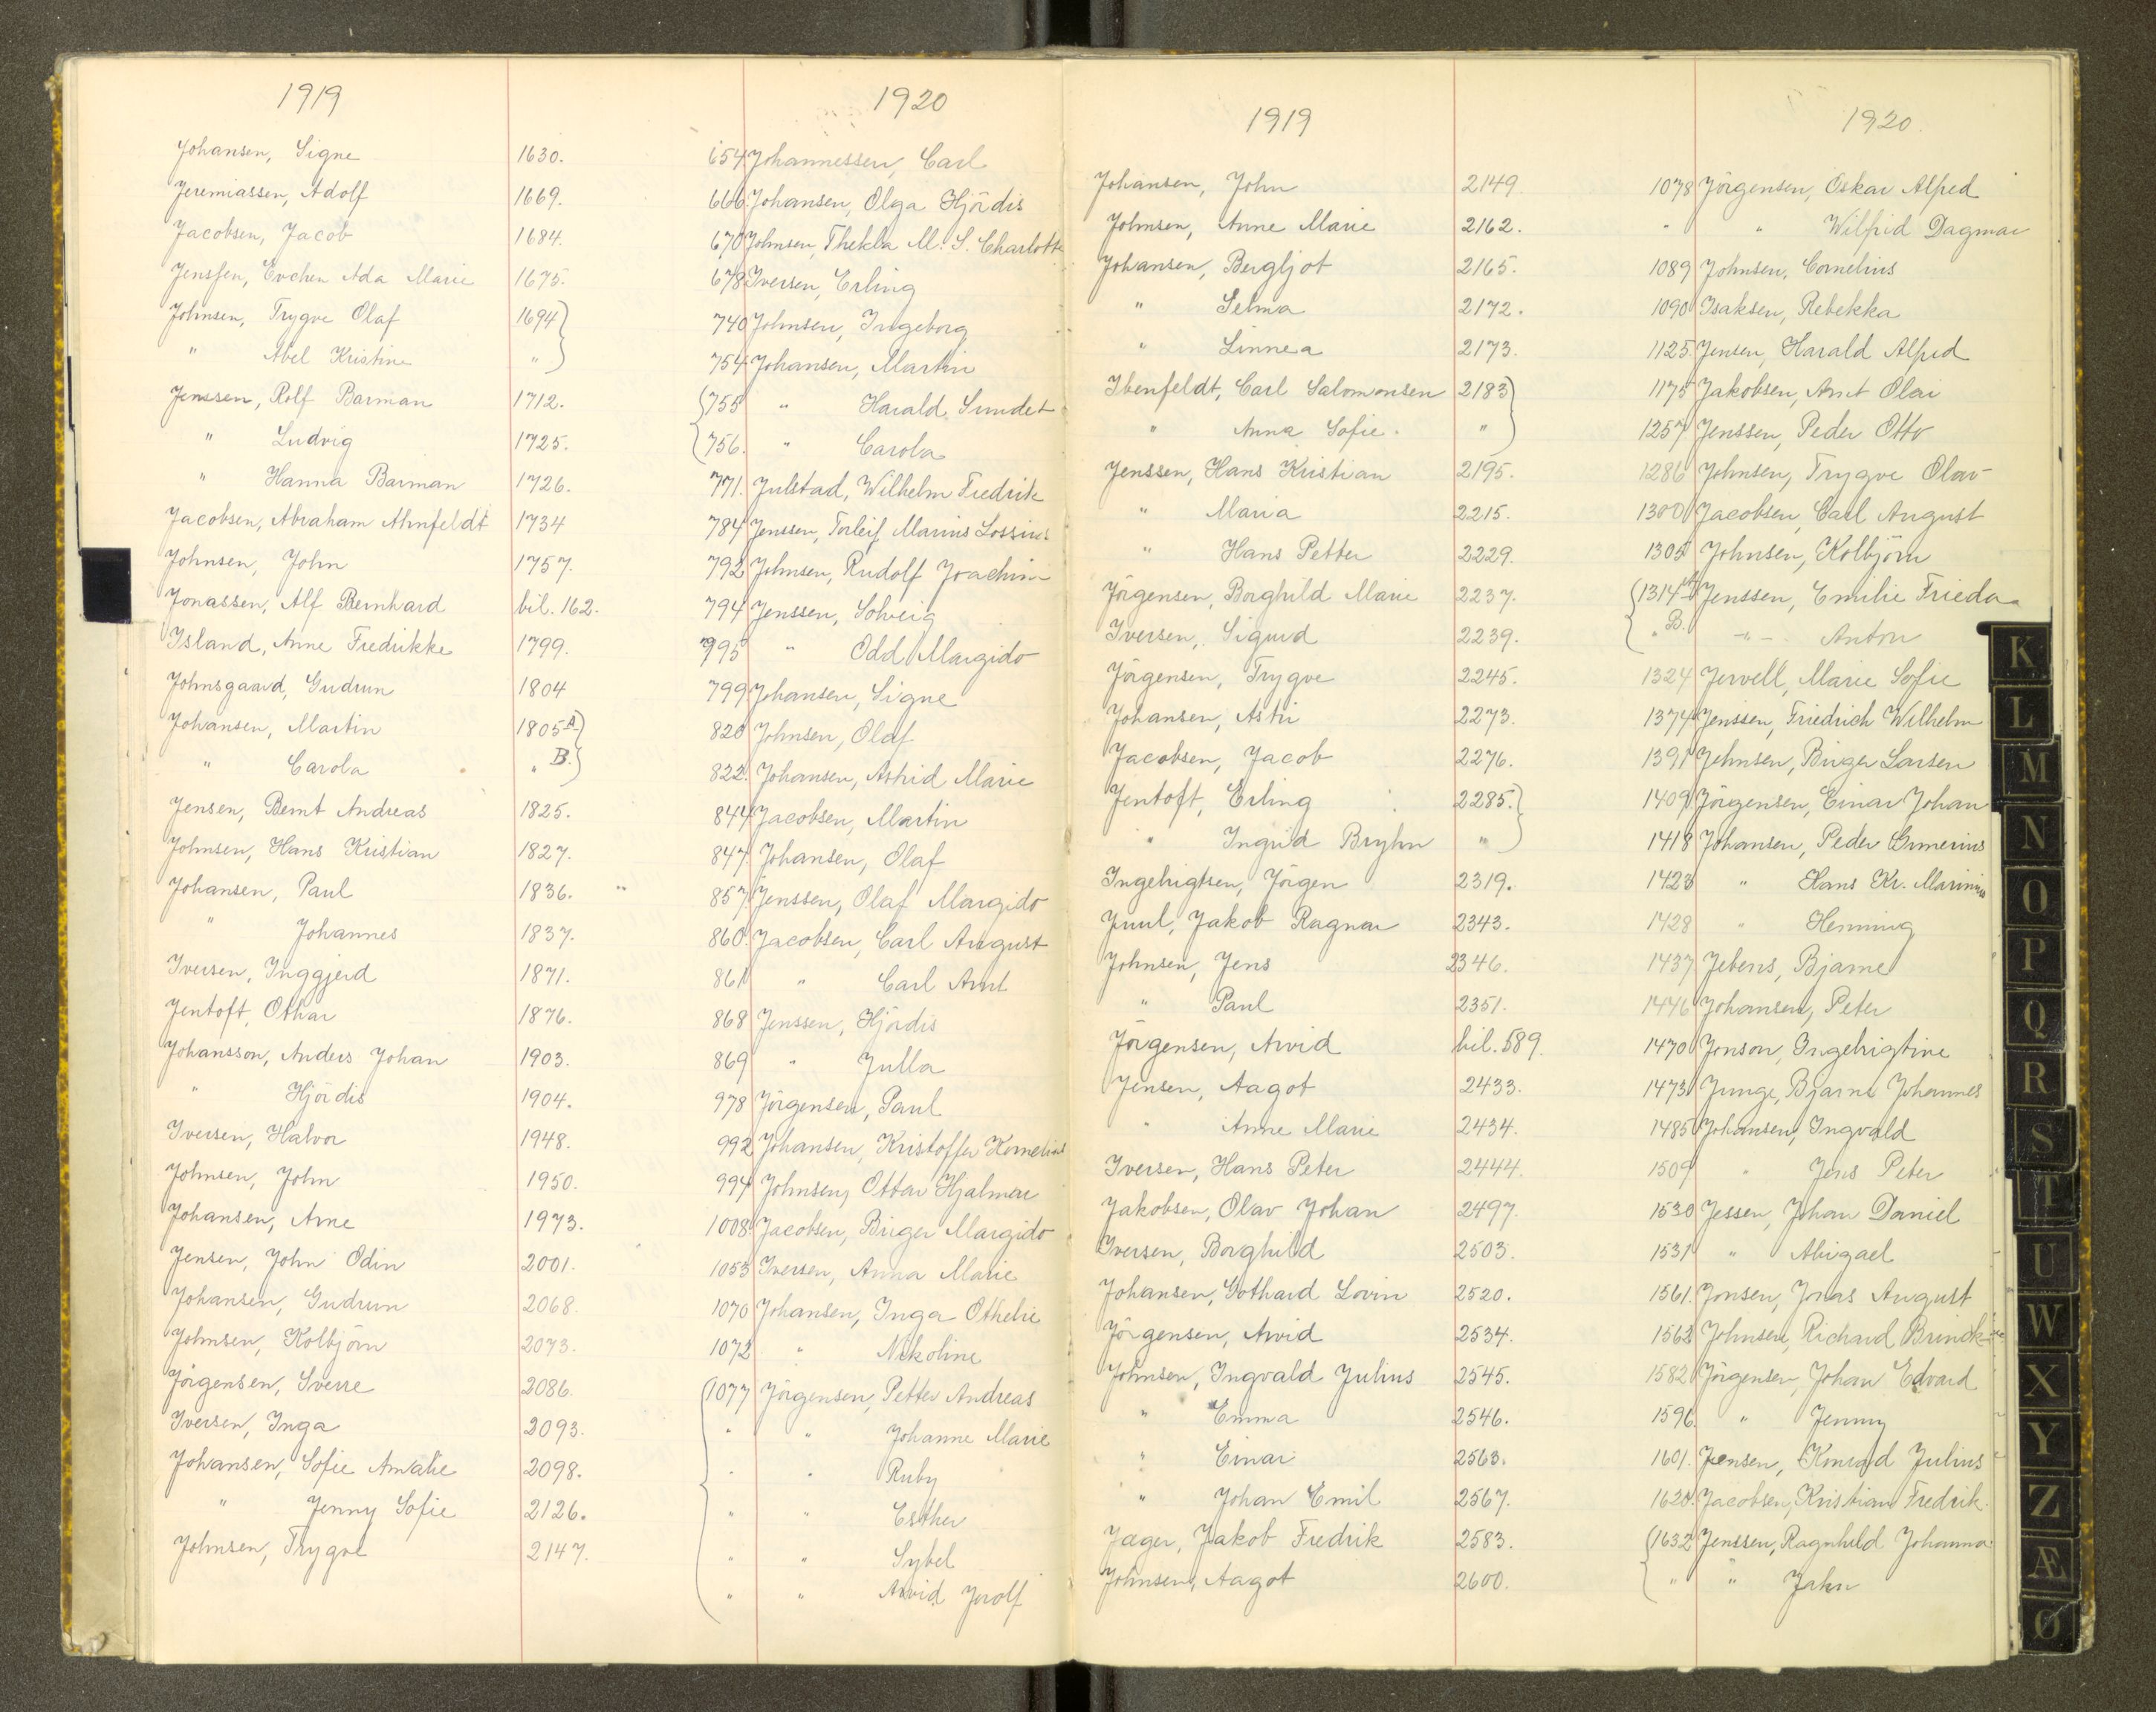 1919
Johansen, Signe 1630.
Jeremiassen, Adolf 1669.
Jacobsen, Jacob 1684.
Jenssen, Evchen Ada Marie 1675.
Johnsen, Trygve Olaf 1694
" Abel Kristine "
Jenssen, Rolf Barman 1712.
" Ludvig 1725.
" Hanna Barman 1726.
Jacobsen, Abraham Ahnfeldt 1734
Johnsen, John 1757.
Jonassen, Alf Bernhard bil. 162.
Island, Anne Fredrikke 1799.
Johnsgaard, Gudrun 1804
Johansen, Martin 1805 A
" Carola " B.
Jensen, Bernt Andreas 1825.
Johnsen, Hans Kristian 1827.
Johansen, Paul 1836. "
" Johannes 1837.
Iversen, Inggjerd 1871.
Jentoft, Othar 1876.
Johansson, Anders Johan 1903.
" Hjördis 1904.
Iversen, Halvor 1948.
Johnsen, John 1950.
Johansen, Arne 1973.
Jensen, John Odin 2001.
Johansen, Gudrun 2068.
Johnsen, Kolbjörn 2073.
Jörgensen, Sverre 2086.
Iversen, Inga 2093.
Johansen, Sofie Amalie 2098.
" Jenny Sofie 2126.
Johnsen, Trygve 2147.
1920
654 Johannessen, Carl
666 Johansen, Olga Hjördis
670 Johnsen, Thekla M. S. Charlotte
678 Iversen, Erling
740 Johnsen, Ingeborg
754 Johansen, Martin
755 " Harald Sundet
756. " Carola
771. Julstad, Wilhelm Fredrik
784 Jenssen, Torleif Marius Lossius
792 Johnsen, Rudolf Joachim
794 Jenssen, Solveig
795 " Odd Margido
799 Johansen, Signe
820 Johnsen, Olaf
822. Johansen, Astrid Marie
844 Jacobsen, Martin
847 Johansen, Olaf
857 Jenssen, Olaf Margido
860. Jacobsen, Carl August
861 " Carl Arnt
868 Jenssen, Hjördis
869 " Julla
978 Jörgensen, Paul
992 Johansen, Kristoffer Kornelius
994 Johnsen, Ottar Hjalmar
1008. Jacobsen, Birger Margido
1053 Iversen, Anna Marie
1070 Johansen, Inga Othelie
1072 " Nikoline
1077 Jörgensen, Petter Andreas
" " Johanne Marie
" " Ruby
" " Esther
" " Sybel
" " Arvid Jrolf
1919
Johansen, John 2149.
Johnsen, Anne Marie 2162.
Johansen, Bergljot 2165.
" Selma 2172.
" Linnea 2173.
Ibenfeldt, Carl Salomonsen 2183
" Anna Sofie. "
Jenssen, Hans Kristian 2195.
" Maria 2215.
" Hans Petter 2229.
Jörgensen, Borghild Marie 2237.
Iversen, Sigurd 2239.
Jörgensen, Trygve 2245.
Johansen, Astri 2273.
Jacobsen, Jacob 2276.
Jentoft, Erling 2285.
" Ingrid Bryhn "
Ingebrigtsen, Jörgen 2319.
Juul, Jakob Ragnar 2343.
Johnsen, Jens 2346.
" Paul 2351.
Jörgensen, Arvid bil. 589.
Jensen, Aagot 2433.
" Anne Marie 2434.
Iversen, Hans Peter 2444.
Jakobsen, Olav Johan 2497.
Iversen, Borghild 2503.
Johansen, Gothard Lovin 2520.
Jörgensen, Arvid 2534.
Johnsen, Ingvald Julius 2545.
" Emma 2546.
" Einar 2563.
" Johan Emil 2567.
Jæger, Jakob Fredrik 2583.
Johnsen, Aagot 2600.
1920.
1078 Jörgensen, Oskar Alfred
" " Wilfrid Dagmar
1089 Johnsen, Cornelius
1090 Isaksen, Rebekka
1125 Jensen, Harald Alfred
1175 Jakobsen, Arnt Olai
1257 Jenssen, Peder Otto
1286 Johnsen, Trygve Olav
1300 Jacobsen, Carl August
1305 Johnsen, Kolbjörn
1314 A Jenssen, Emilie Frieda
" B. -"- Anton
1324 Jervell, Marie Sofie
1374 Jenssen, Friedrich Wilhelm
1391 Johnsen, Birger Larsen
1409 Jörgensen, Einar Johan
1418 Johansen, Peder Ormerius
1423 " Hans Kr. Marinius
1428 " Henning
1437 Jebens, Bjarne
1446 Johansen, Peter
1470 Jonson, Ingebrigtine
1473 Junge, Bjarne Johannes
1485 Johansen, Ingvald
1509 " Jens Peter
1530 Jessen, Johan Daniel
1531 " Abigael
1561. Jonsen, Jonas August
1562 Johnsen, Richard
1582 Jörgensen, Johan Edvard
1596. " Jenny
1601. Jensen, Konrad Julius
1620. Jacobsen, Kristian Fredrik.
1632 Jenssen, Ragnhild Johanna
" " Jahn
K
L
M
N
O
P
Q
R
S
T
U
W
X
Y
Z
Æ
Ø